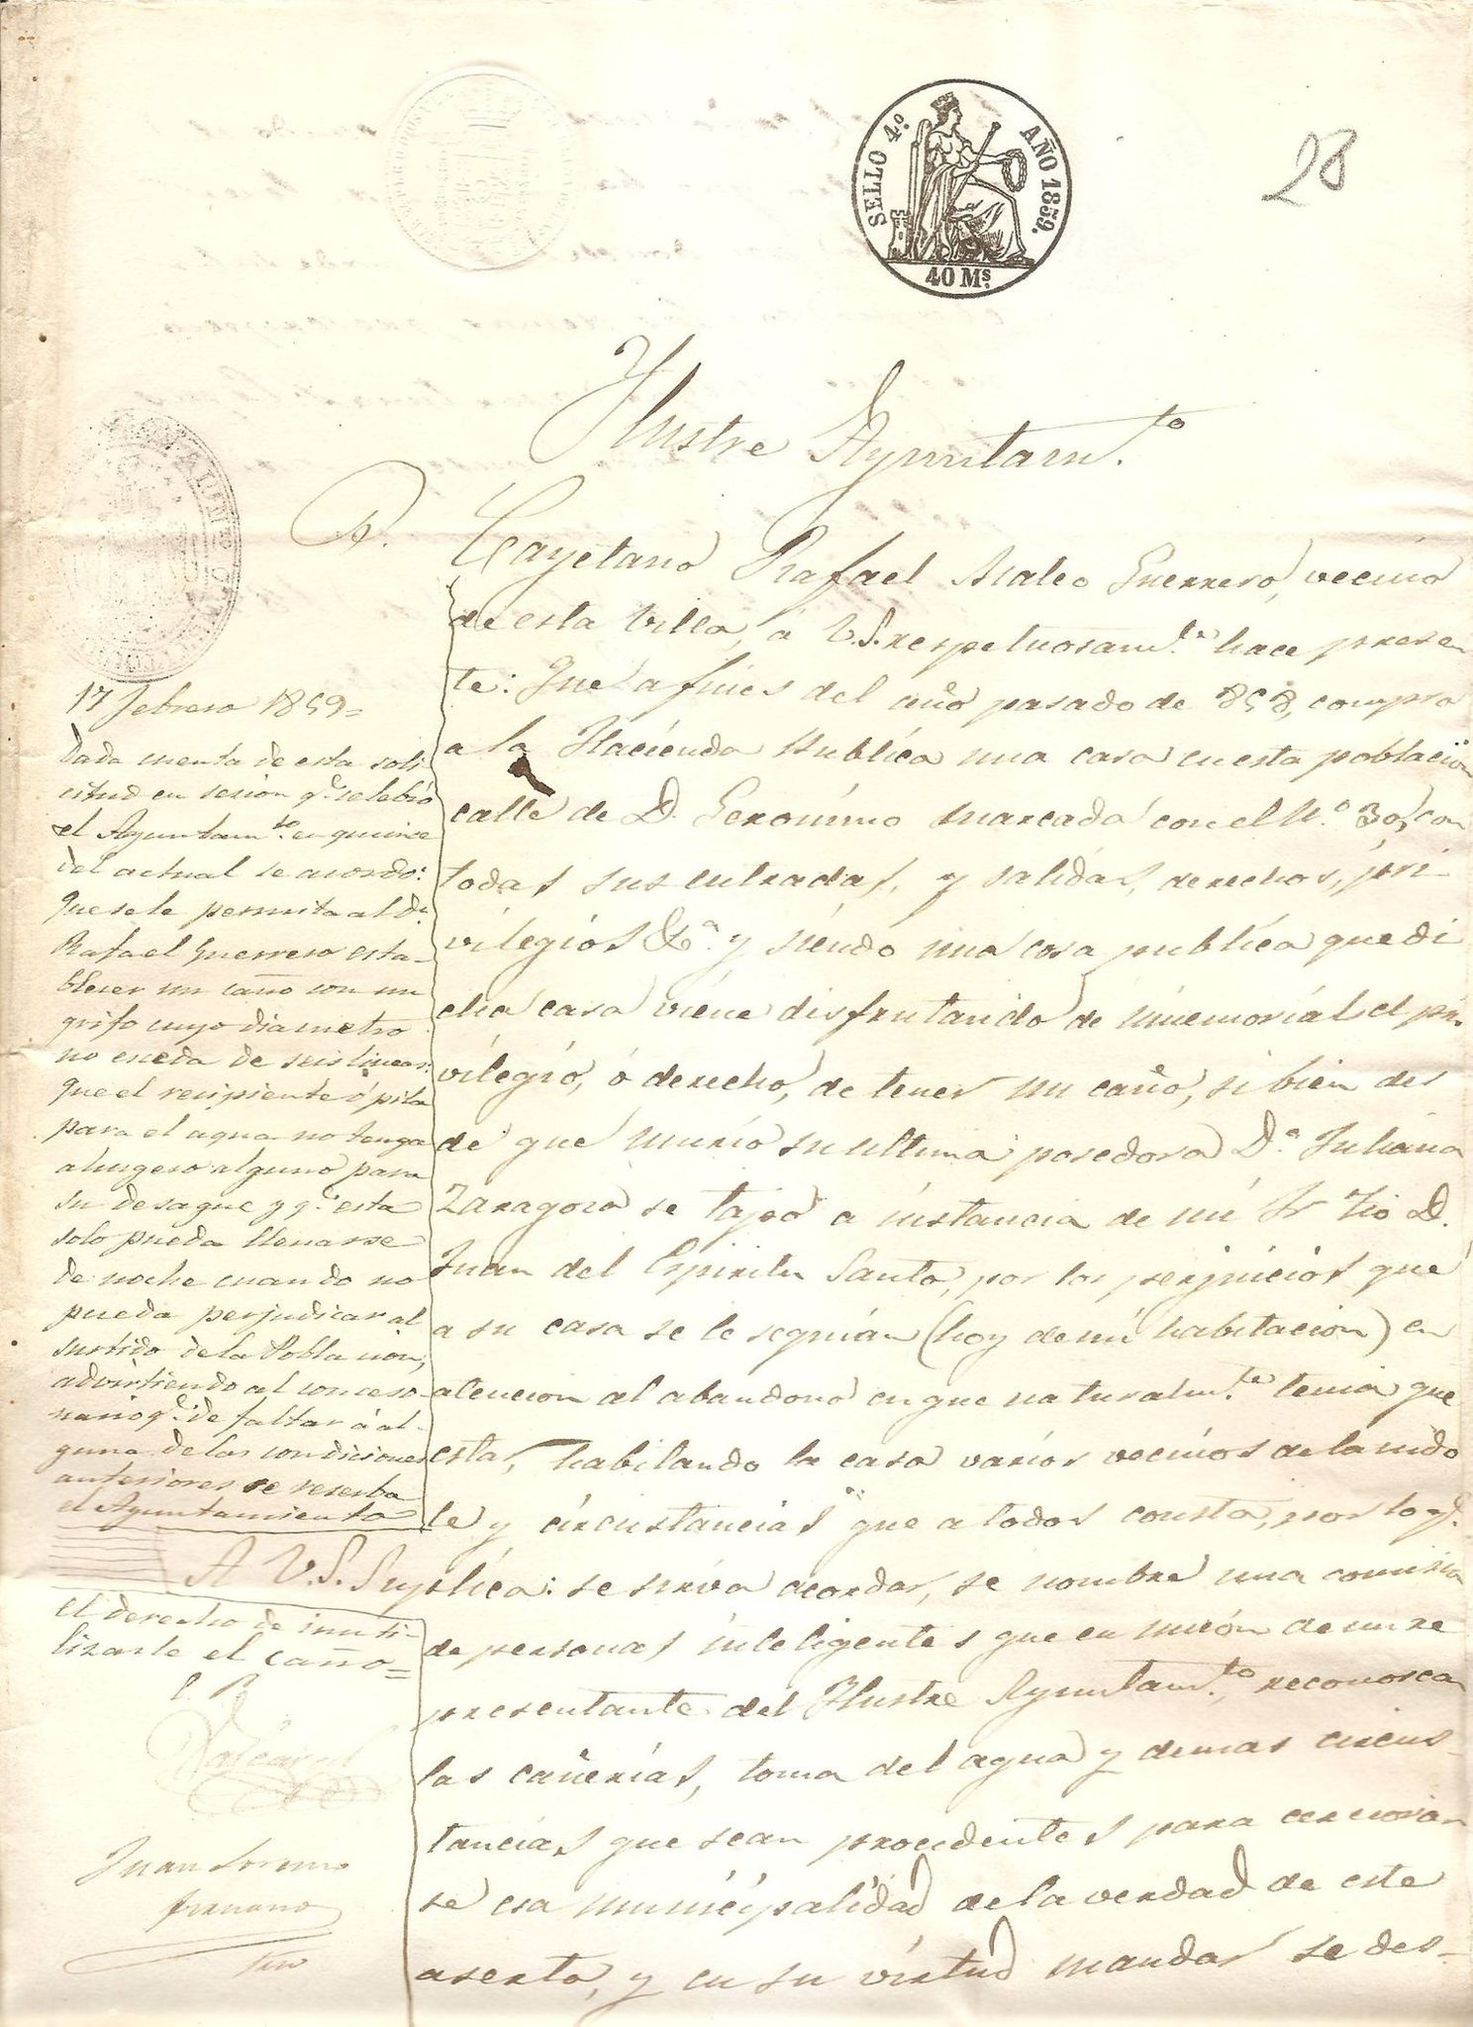 SELLO 4º AÑO 1859.
40 Ms.
28
Ilustre Ayuntam.to
D. Cayetano Rafael Maleo Guerrero, vecino
de esta villa, á V.S. respetuosam.te hace presen
te: Que a fines del año pasado de 858, compro
a la Hacienda Publica una casa en esta poblacion
calle de D. Geronimo marcada con el N.º 30, con
todas sus entradas, y salidas, derechos, pri-
vilegios &.a y siendo una cosa publica que di
cha casa viene disfrutando de inmemorial el pri-
vilegio, ó derecho, de tener un caño, si bien des
de que murio su ultima posedora D.a Juliana
Zaragoza se tapó a instancia de mi Sr Tio D.
Juan del Espiritu Santo, por los perjuicios que
a su casa se le seguian (hoy de mi habitacion) en
atencion al abandono en que naturalm.te tenia que
estar, habitando la casa varios vecinos de la indo
le y circustancias que a todos consta, por lo q.e
A V.S. Suplica: se sirva acordar, se nombre una comision
de personas inteligentes que en unión de un re
presentante del Ilustre Ayuntam.to, reconoscan
las cañerias, toma del agua y demas circus-
tancias que sean procedentes para cerciorar
se esa municipalidad de la verdad de este
aserto, y en su virtud mandar se des-
17 Febrero 1859=
Dada cuenta de esta soli
citud en sesion q.e celebró
el Ayuntam.to en quince
del actual se acordó:
Que se le permita al D.n
Rafael Guerrero esta-
blecer un caño con un
grifo cuyo diametro
no eceda de seis lineas:
que el recipiente ó pila
para el agua no tenga
abugero alguno para
su desague y q.e esta
solo pueda llenarse
de noche cuando no
pueda perjudicar al
surtido de la Poblacion;
advirtiendo al conceso-
nario q.e de faltar á al-
guna de las condiciones
anteriores se reserba
el Ayuntamiento
el derecho de inuti-
lizarle el caño=
Juan Lorenzo
Srio